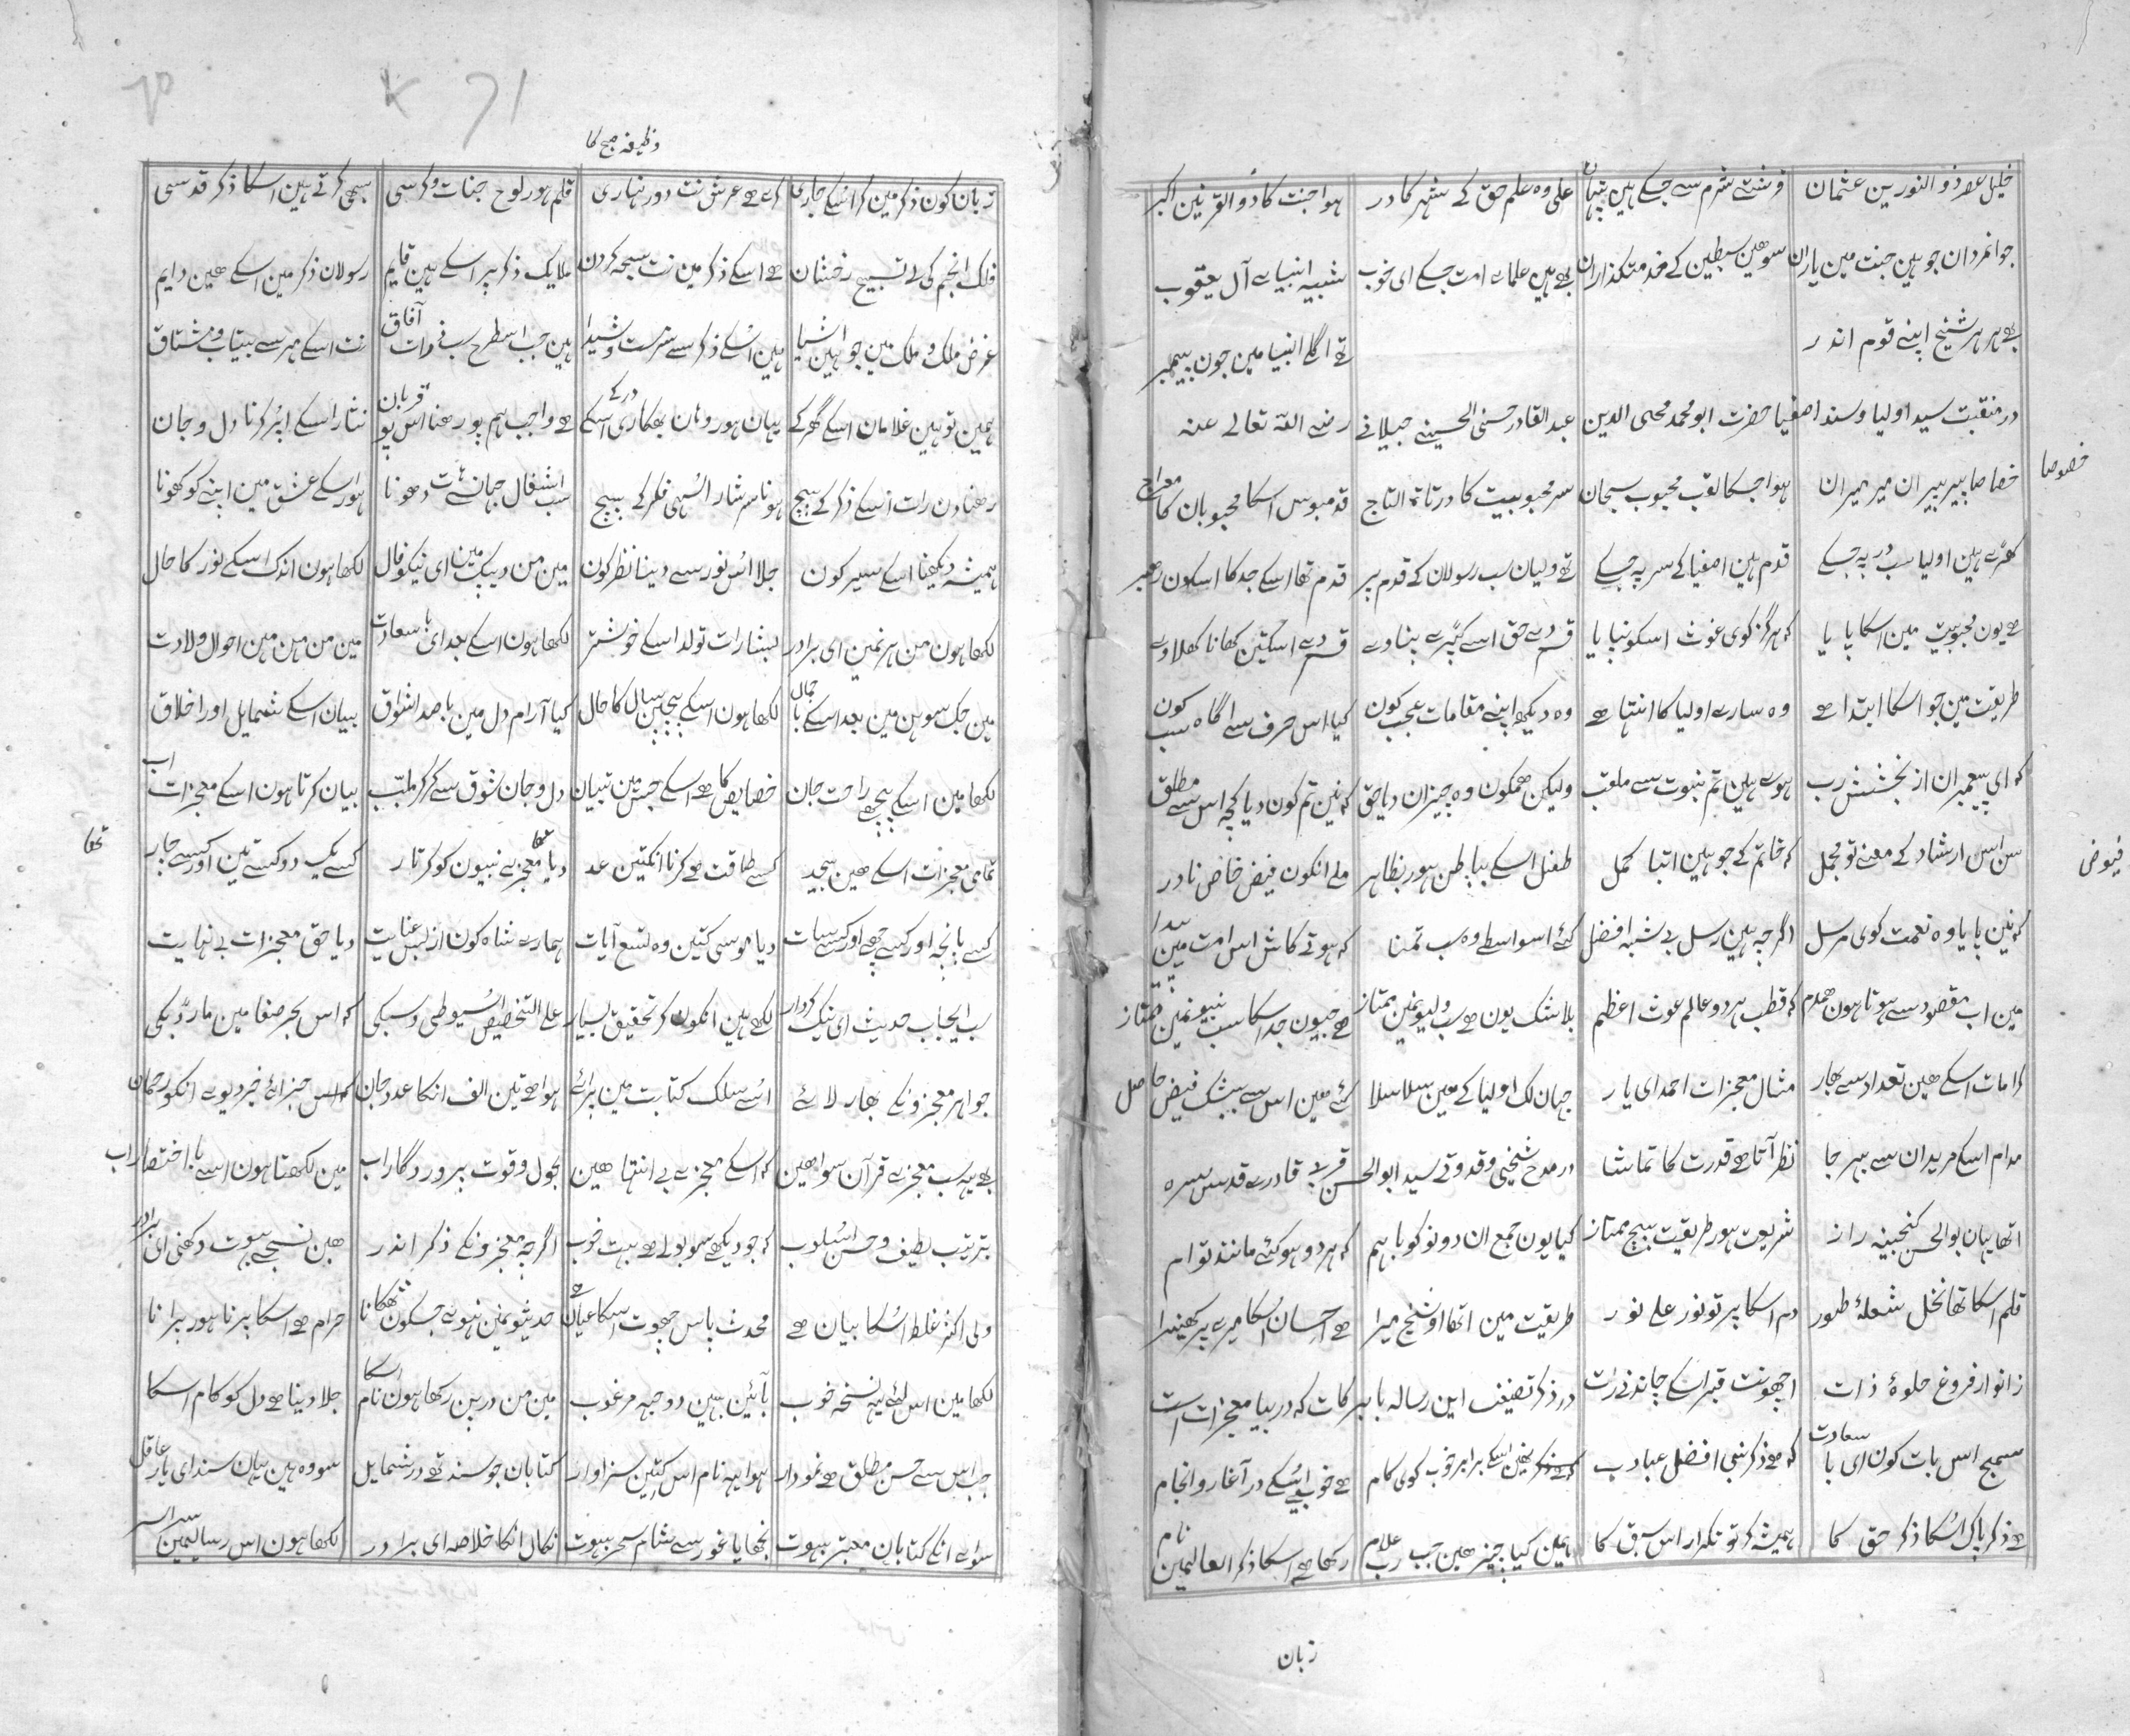 خلیل عصر ذو النورین عثمان فرشتے شرم سے جسکے ہین پنہان علی وہ علم حق کے شہر کا در ہوا جنت کا ذو القرنین اکبر
جوانمردان جو ہین جنت مین یاران سو ھین سبطین کے خدمتگذاران ہے ہین علماے امت جسکے ای خوب شبیہ انبیاے آل یعقوب
ہے ہر ہر شیخ اپنے قوم اندر تھے اگلے انبیا مین جون پیمبر
در منقبت سید اولیا و سند اصفیا حضرت ابو محمد محی الدین عبد القادر حسنی الحسینے جیلانے رضے اللہ تعالے عنہ
خصوصا
خصاصا پیر پیران میر میران ہوا جسکا لقب محبوب سبحان سر محبوبیت کا درتاۃ التاج قدمبوس اسکا محبوبان کا معراج
کھڑے ہین اولیا سب در پہ جسکے قدم ہین اصفیا کے سر پہ جسکے تھے ولیان سب رسولان کے قدم پر قدم تھا اسکے جد کا اسکون رھبر
ھے یون محبوبیت مین اسکا پایا کہ ہرگز کوی غوث اسکو نپایا قسم دے حق اسے کپڑے پناوے قسم دے اسکتین کھانا کھلاوے
طریقت مین جو اسکا ابتدا ھے وہ سارے اولیا کا انتہا ھے وہ دیکھ اپنے مقامات عجب کون کیا اس حرف سے اگاہ سب کون
کہ ای پیغمبران از بخشش رب ہوے ہین تم نبوت سے ملقب ولیکن ھمکون وہ چیزان دیا حق کہ نین تم کون دیا کچہ اس سے مطلق
سن اس ارشاد کے معنے تو مجمل کہ خاتم کے جو ہین اتباع کمل طفیل اسکے بباطن ہور بظاہر ملے انکون فیض خاص نادر
فیوض
کہ نین پایا وہ نعمت کوی مرسل اگرچہ ہین رسل بے شبہ افضل کئے اسواسطے وہ سب تمنا کہ ہوتے کاش اس امت مین پیدا
مین اب مقصود سے ہوتا ہون ھمدم کہ قطب ہر دو عالم غوث اعظم بلا شک یون ھے سب ولیونمین ممتاز ھے جیون جد اسکا سب نبیونمین ممتاز
کرامات اسکے ھین تعداد سے بھار مثال معجزات احمد ای یار جہان لک اولیا کے ھین سلاسلا لئے ھین اس سے بیشک فیض حاصل
مدام اسکے مریدان سے بہر جا نظر آتا ھے قدرت کا تماشا در مدح شیخی و قدوتے سید ابو الحسن قربے قادرے قدس سرہ
اتھا یہان بو الحسن گنجینہ راز شریعت ہور طریقت بیچ ممتاز کیا یون جمع ان دونو کو باہم کہ ہر دو ہو گئے مانند توام
قلم اسکا تھا نخل شعلۂ طور دم اسکا پرتو نور علے نور طریقت مین اتھا او شیخ میرا ھے احسان اسکا میرے پر گھنیرا
زانوار فروغ جلوۂ ذات اچھو نت قبر اسکے چاندنے رات در ذکر تصنیف این رسالہ با برکات کہ در بیا معجزات است
سمج اس بات کون ای با سعادت کہ ھے ذکر نبی افضل عبادت کہ ھے ذکر نھین اسکے برابر خوب کوئی کام ھے خوب اسکے در آغاز و انجام
ھے ذکر پاک اسکا ذکر حق کا ہمیشہ کر تو تکرار اس سبق کا ہمین کیا چیز ھین جب رب علام رکھا ھے اسکا ذکر العالمین نام
زبان
وظیفہ صبح کا
زبان کون ذکر مین کر اسکے جاری کرے ھے عرش نت دور نہاری قلم ہور لوح جنات و کرسی سبھی کرتے ہین اسکا ذکر قدسی
فلک انجم کی لے تسبیح رخشان ھے اسکے ذکر مین نت سبحہ گردن ملایک ذکر پر اسکے ہین قایم رسولان ذکر مین اسکے ھین دایم
غرض ملک و ملک مین جو ہین اشیا ہین اسکے ذکر سے سرمست و شیدا ہین جب اسطرح سب ذرات آفاق نت اسکے مہر سے بیتاب و مشتاق
ہمین تو ہین غلامان اسکے گھر کے یہان ہور وہان بھکاری اسکے در کے ھے واجب ہم پو رھنا اس پو قربان نثار اسکے اپر کرنا دل و جان
رھنا دن رات اسکے ذکر کے بیچ ہونا سرشار اسہی فکر کے بیچ سب اشغال جہان سے ہات دھونا ہور اسکے عشق مین اپنے کو کھونا
ہمیشہ دیکھنا اسکے سیر کون جلا اس نور سے دینا نظر کون مین من دیپک مین ای نیکو فال لکھا ہون اندک اسکے نور کا حال
لکھا ہون من ہرنمین ای برادر بشارات تولد اسکے خوشتر لکھا ہون اسکے بعد ای با سعادت مین من مہن مین احوال ولادت
مین جگ سوہن مین بعد اسکے با جمال لکھا ہون اسکے پچپن سال کا حال کیا آرام دل مین با صد اشواق بیان اسکے شمایل اور اخلاق
لکھا مین اسکے پیچھے راحت جان خصایص کا ھے اسکے جس مین تبیان دل و جان شوق سے کر کر ملتب بیان کرتا ہون اسکے معجزات اب
تمامی معجزات اسکے ھین بیحد کسے طاقت ھے کرنا انکتین عد دیا تھا معجزے نبیون کو کرتار کسے یک دو کسے تین اور کسے چار
تھا
کسے پانچہ اور کسے چھے اور کسے سات دیا موسی کتین وہ تسع آیات ہمارے شاہ کون از بس عنایت دیا حق معجزات بے نہایت
سب ایجاب حدیث ای نیک کردار لکھے ہین انکون کر تحقیق بسیار علے التخصیص السیوطی و سبکی کہ اس بحر صفا مین مار ڈبکی
جواہر معجزونکے بھار لائے اسے سلک کتابت مین پرائے ہوا ھے تین الف انکا عدد جان کہ اس جزائے خیر دیوے انکو رحمان
ہے یہ سب معجزے قرآن سوا ھین کہ اسکے معجزے بے انتہا ھین بحول و قوت پروردگار اب مین لکھتا ہون اسے با اختصار اب
بترتیب لطیف و حسن اسلوب کہ جو دیکھے سو بولے ھے بہت خوب اگرچہ معجزونکے ذکر اندر ھین نسخے بہوت دکھنی ای برادر
ولی اکثر غلط اسکا بیان ھے محدث پاس جھوت اسکا عیان ھے حدیثونمین نہوے جسکون ٹھکانا حرام ھے اسکا پڑنا ہور پڑانا
لکھا مین اس لئے یہ نسخہ خوب بآئین بہین و وجہ مرغوب مین من درپن رکھا ہون نام اسکا جلا دینا ھے دل کو کام اسکا
جب اس سے حسن مطلق ھے نمودار ہوا یہ نام اس کتین سزاوار کتابان جو سند تھے در شمایل سو وہ ہین یہان سند ای یار عاقل
سواے انکے کتابان معتبر بہوت بچھایا غور سے شام سحر بہوت نکال انکا خلاصہ ای برادر لکھا ہون اس رسالیمین سراسر